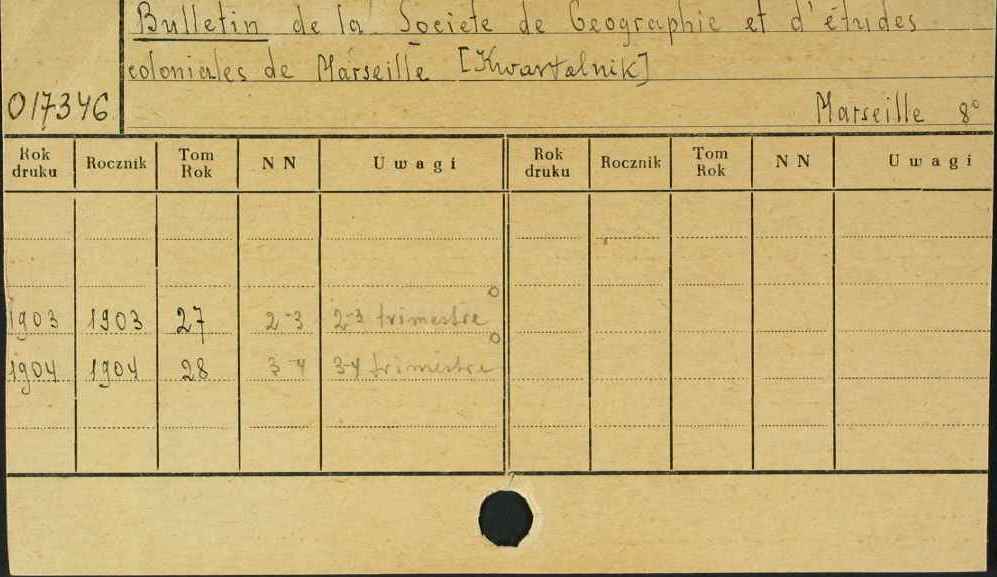 Bulletin de la Societe de Geographie et d'études
coloniales de Marseille [Kwartalnik]
017346
Marseille 8°
Rok druku Rocznik Tom Rok NN Uwagi Rok druku Rocznik Tom Rok NN Uwagi
1903 1903 27 2-3 2-3 trimestre
1904 1904 28 3-4 3-4 trimestre